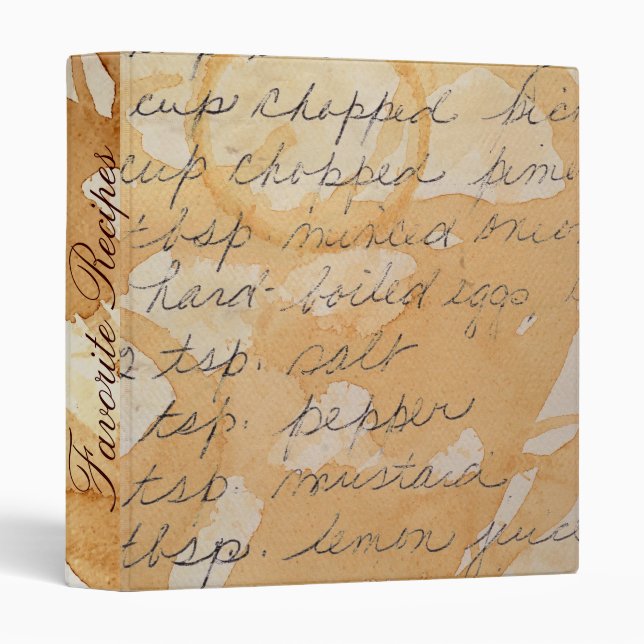 Favorite Recipes
cup chopped pick
cup chopped pime
tbsp. minced onion
hard-boiled eggs,
2 tsp. salt
tsp. pepper
tsp. mustard
tbsp. lemon juice